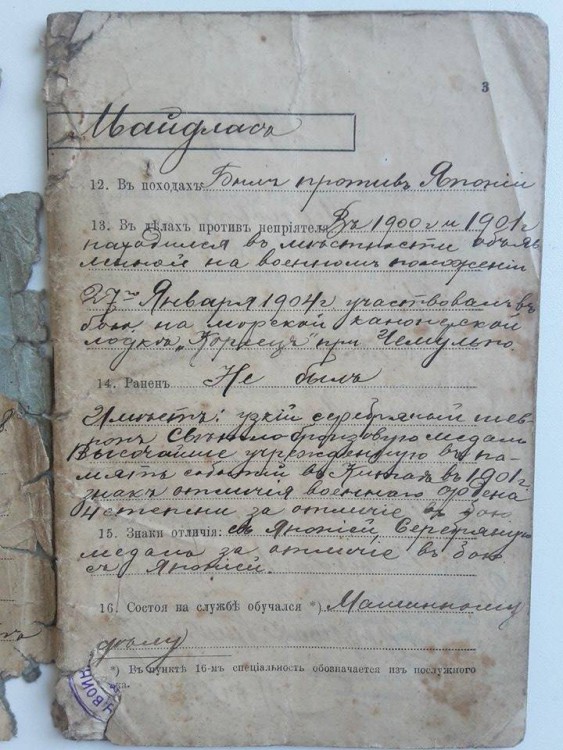 3
Майдласъ
12. Въ походахъ: Былъ противъ Японіи
13. Въ дѣлахъ противъ непріятеля Въ 1900 г и 1901 г
находился въ мѣстности объяв
ленной на военномъ положеніи
27го Января 1904 г. участвовалъ въ
бою на морской канонерской
лодкѣ „Кореецъ" при Чемульпо
14. Раненъ Не былъ
Имѣетъ: узкій серебряный шев
ронъ Свѣтлобронзовую медаль
Высочайше учрежденную въ па-
мять событій въ Китаѣ въ 1901 г.
знакъ отличія военнаго ордена
4 степени за отличіе въ бою
15. Знаки отличія: съ Японіей, Серебряную
медаль за отличіе въ бою
съ Японіей.
16. Состоя на службѣ обучался *) Машинному
дѣлу
*) Въ пунктѣ 16-мъ спеціальность обозначается изъ послужного